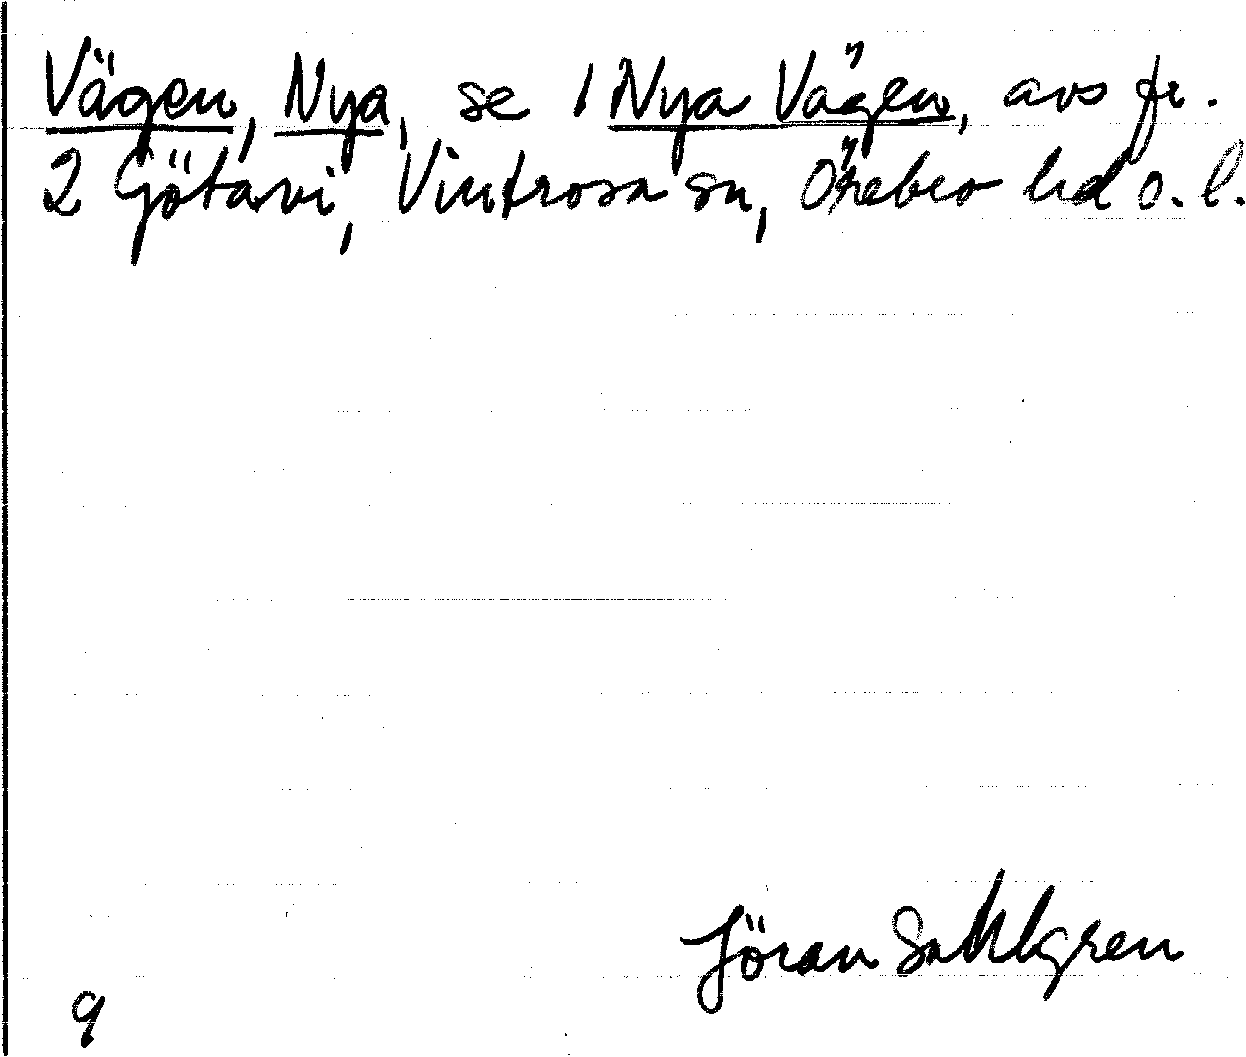 Vägen, Nya, se 1 Nya Vägen, avs fr.
2 Götavi, Vintrosa sn, Örebro hd o. l.
Jöran Sahlgren
9